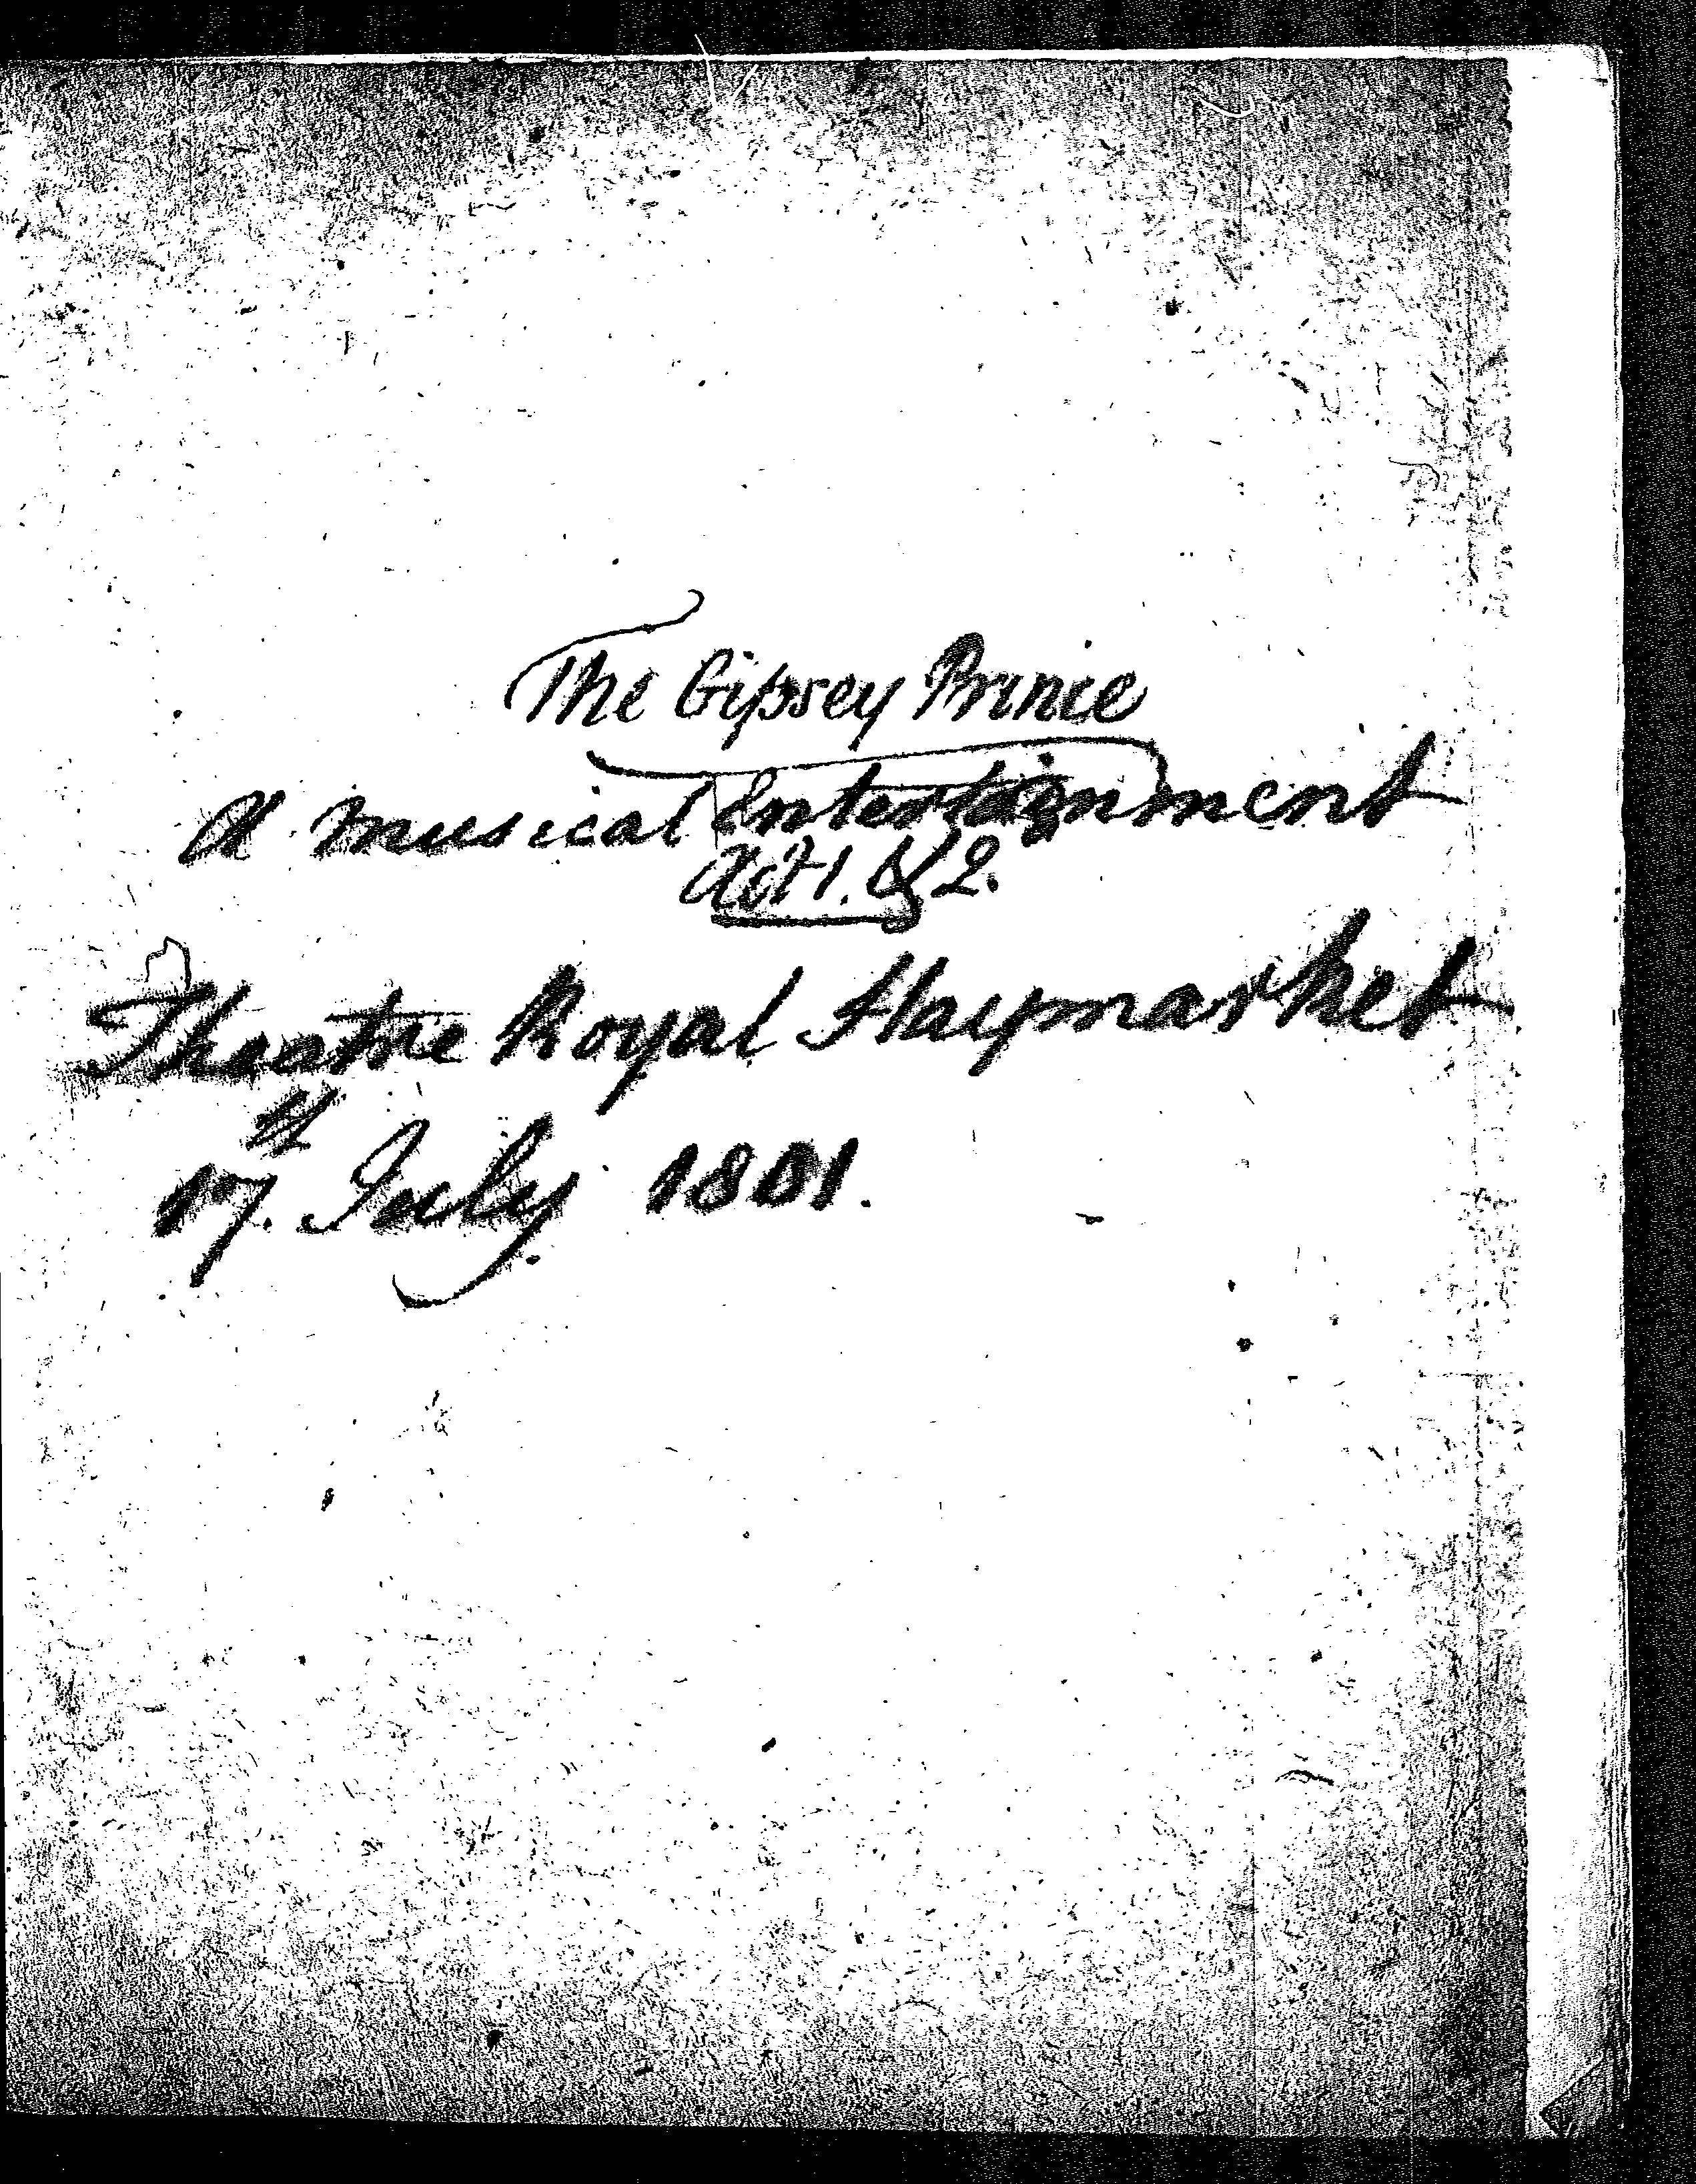 The Gipsey Prince
A Musical Entertainment
Act 1. & 2.
Theatre Royal Haymarket
17th July 1801.